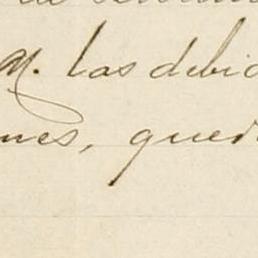 M. las debid
nes, qued